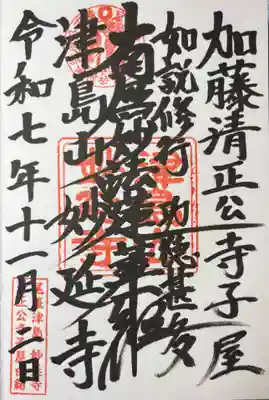 加藤清正公寺子屋
如説修行功徳甚多
南無妙法蓮華経
津島山妙延寺
令和七年十一月二日